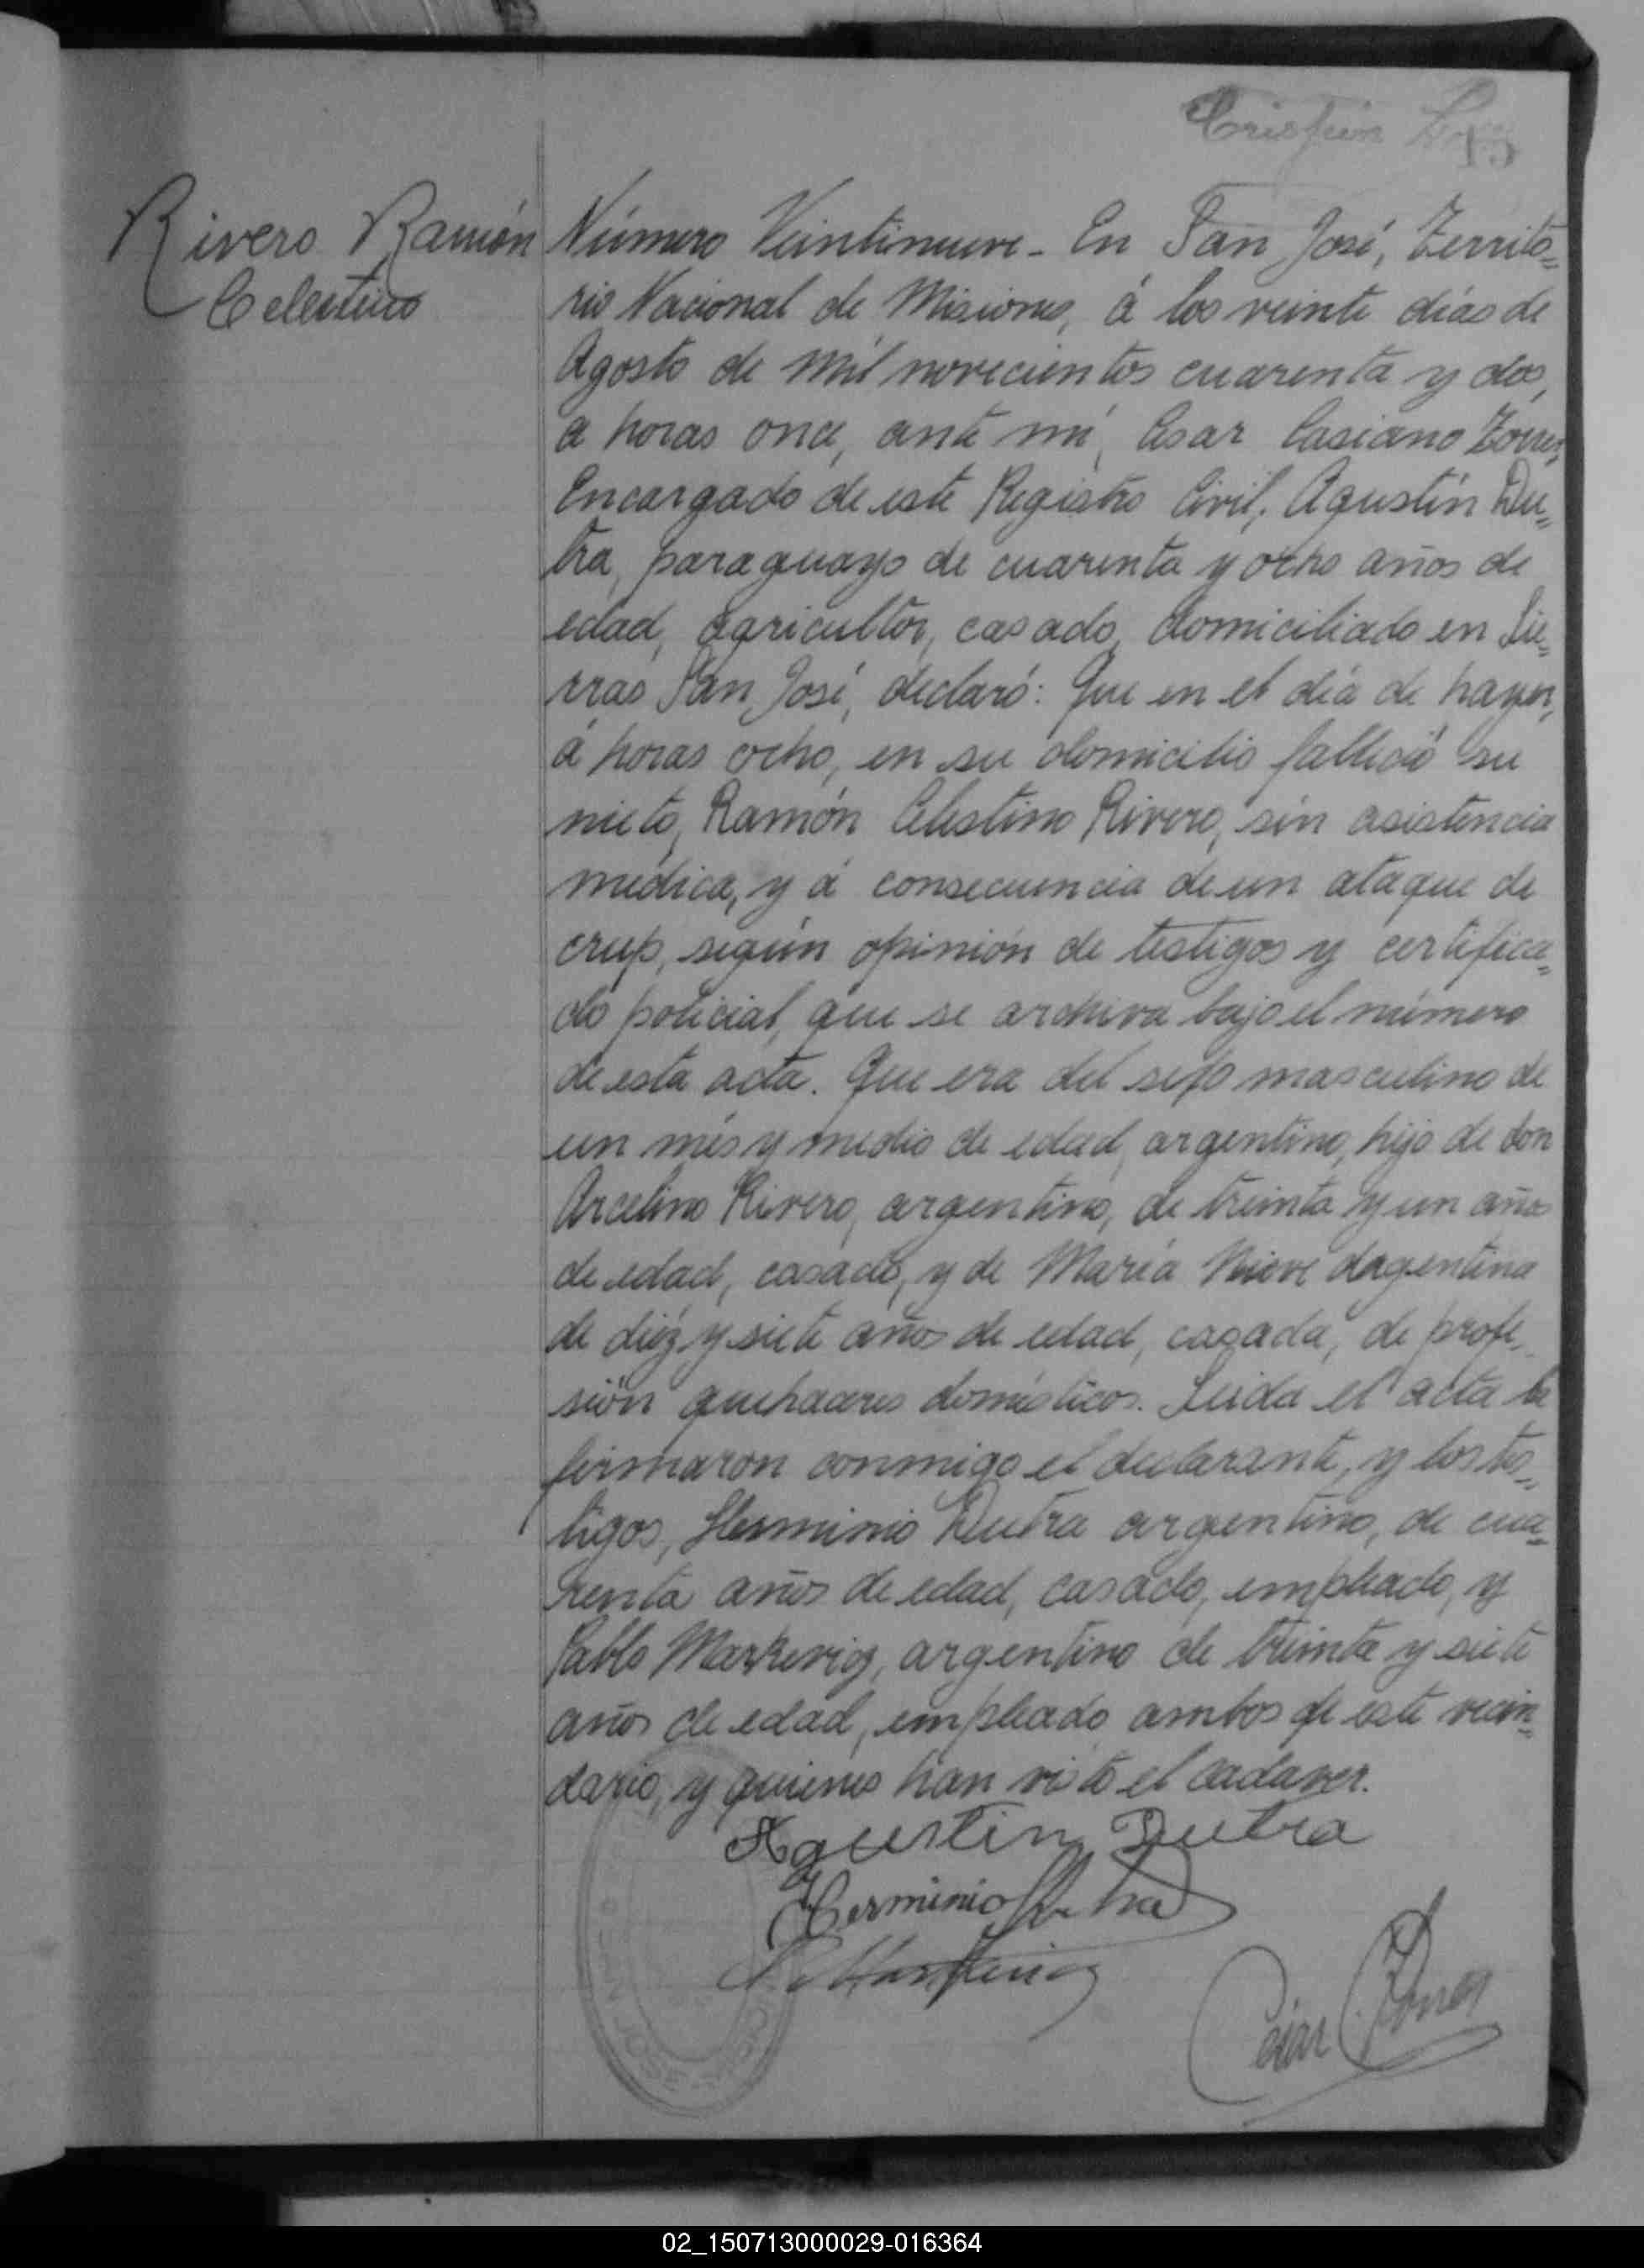 Rivero Ramón
Celestino
Número Veintinueve - En San José, Territo=
rio Nacional de Misiones, á los veinte días de
Agosto de mil novecientos cuarenta y dos,
a horas once, ante mí, Cesar Casiano Torres,
Encargado de este Registro Civil, Agustín Du=
tra, paraguayo de cuarenta y ocho años de
edad, agricultor, casado, domiciliado en Sie=
rras San José, declaró: Que en el día de hayer,
á horas ocho, en su domicilio falleció su
nieto, Ramón Celestino Rivero, sin asistencia
médica, y á consecuencia de un ataque de
crup, según opinión de testigos y certifica=
do policial, que se archiva bajo el número
de esta acta. Que era del sexo masculino de
un mes y medio de edad, argentino, hijo de don
Arcelino Rivero, argentino, de treinta y un años
de edad, casado, y de María Nieve
de diéz y siete años de edad, casada, de profe=
sión quehaceres domésticos. Leida el acta la
firmaron conmigo el declarante, y los tes=
tigos, Herminio Dutra argentino, de cua=
renta años de edad, casado, empleado, y
Pablo Markevicz, argentino de treinta y siete
años de edad, empleado, ambos de este vecin=
dario, y quienes han visto el cadaver.
Agustin Dutra
Herminio Dutra
P. Markevicz
Cesar C. Torres
SAN JOSE
02_150713000029-016364